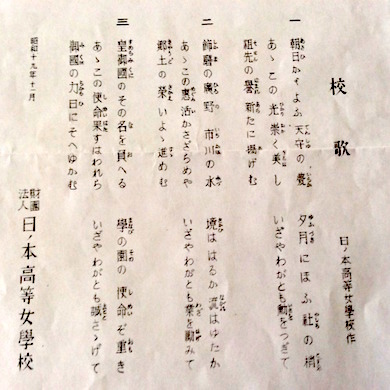 校歌
日ノ本高等女學校作
一
朝日かゞよふ 天守の甍 夕月にほふ 社の梢
あゝこの光 崇く美し いざやわがとも 勳をつぎて
祖先の譽 新たに揚げむ
二
飾磨の廣野 市川の水 境ははるか 流はゆたか
あゝこの惠 活かさざらめや いざやわがとも 業を勵みて
郷土の榮 いよゝ進めむ
三
皇御國のその名を負へる 學の園の 使命ぞ重き
あゝこの使命果すはわれら いざやわがとも 誠さゝげて
御國の力 日にそへゆかむ
昭和十九年
財團法人 日ノ本高等女學校